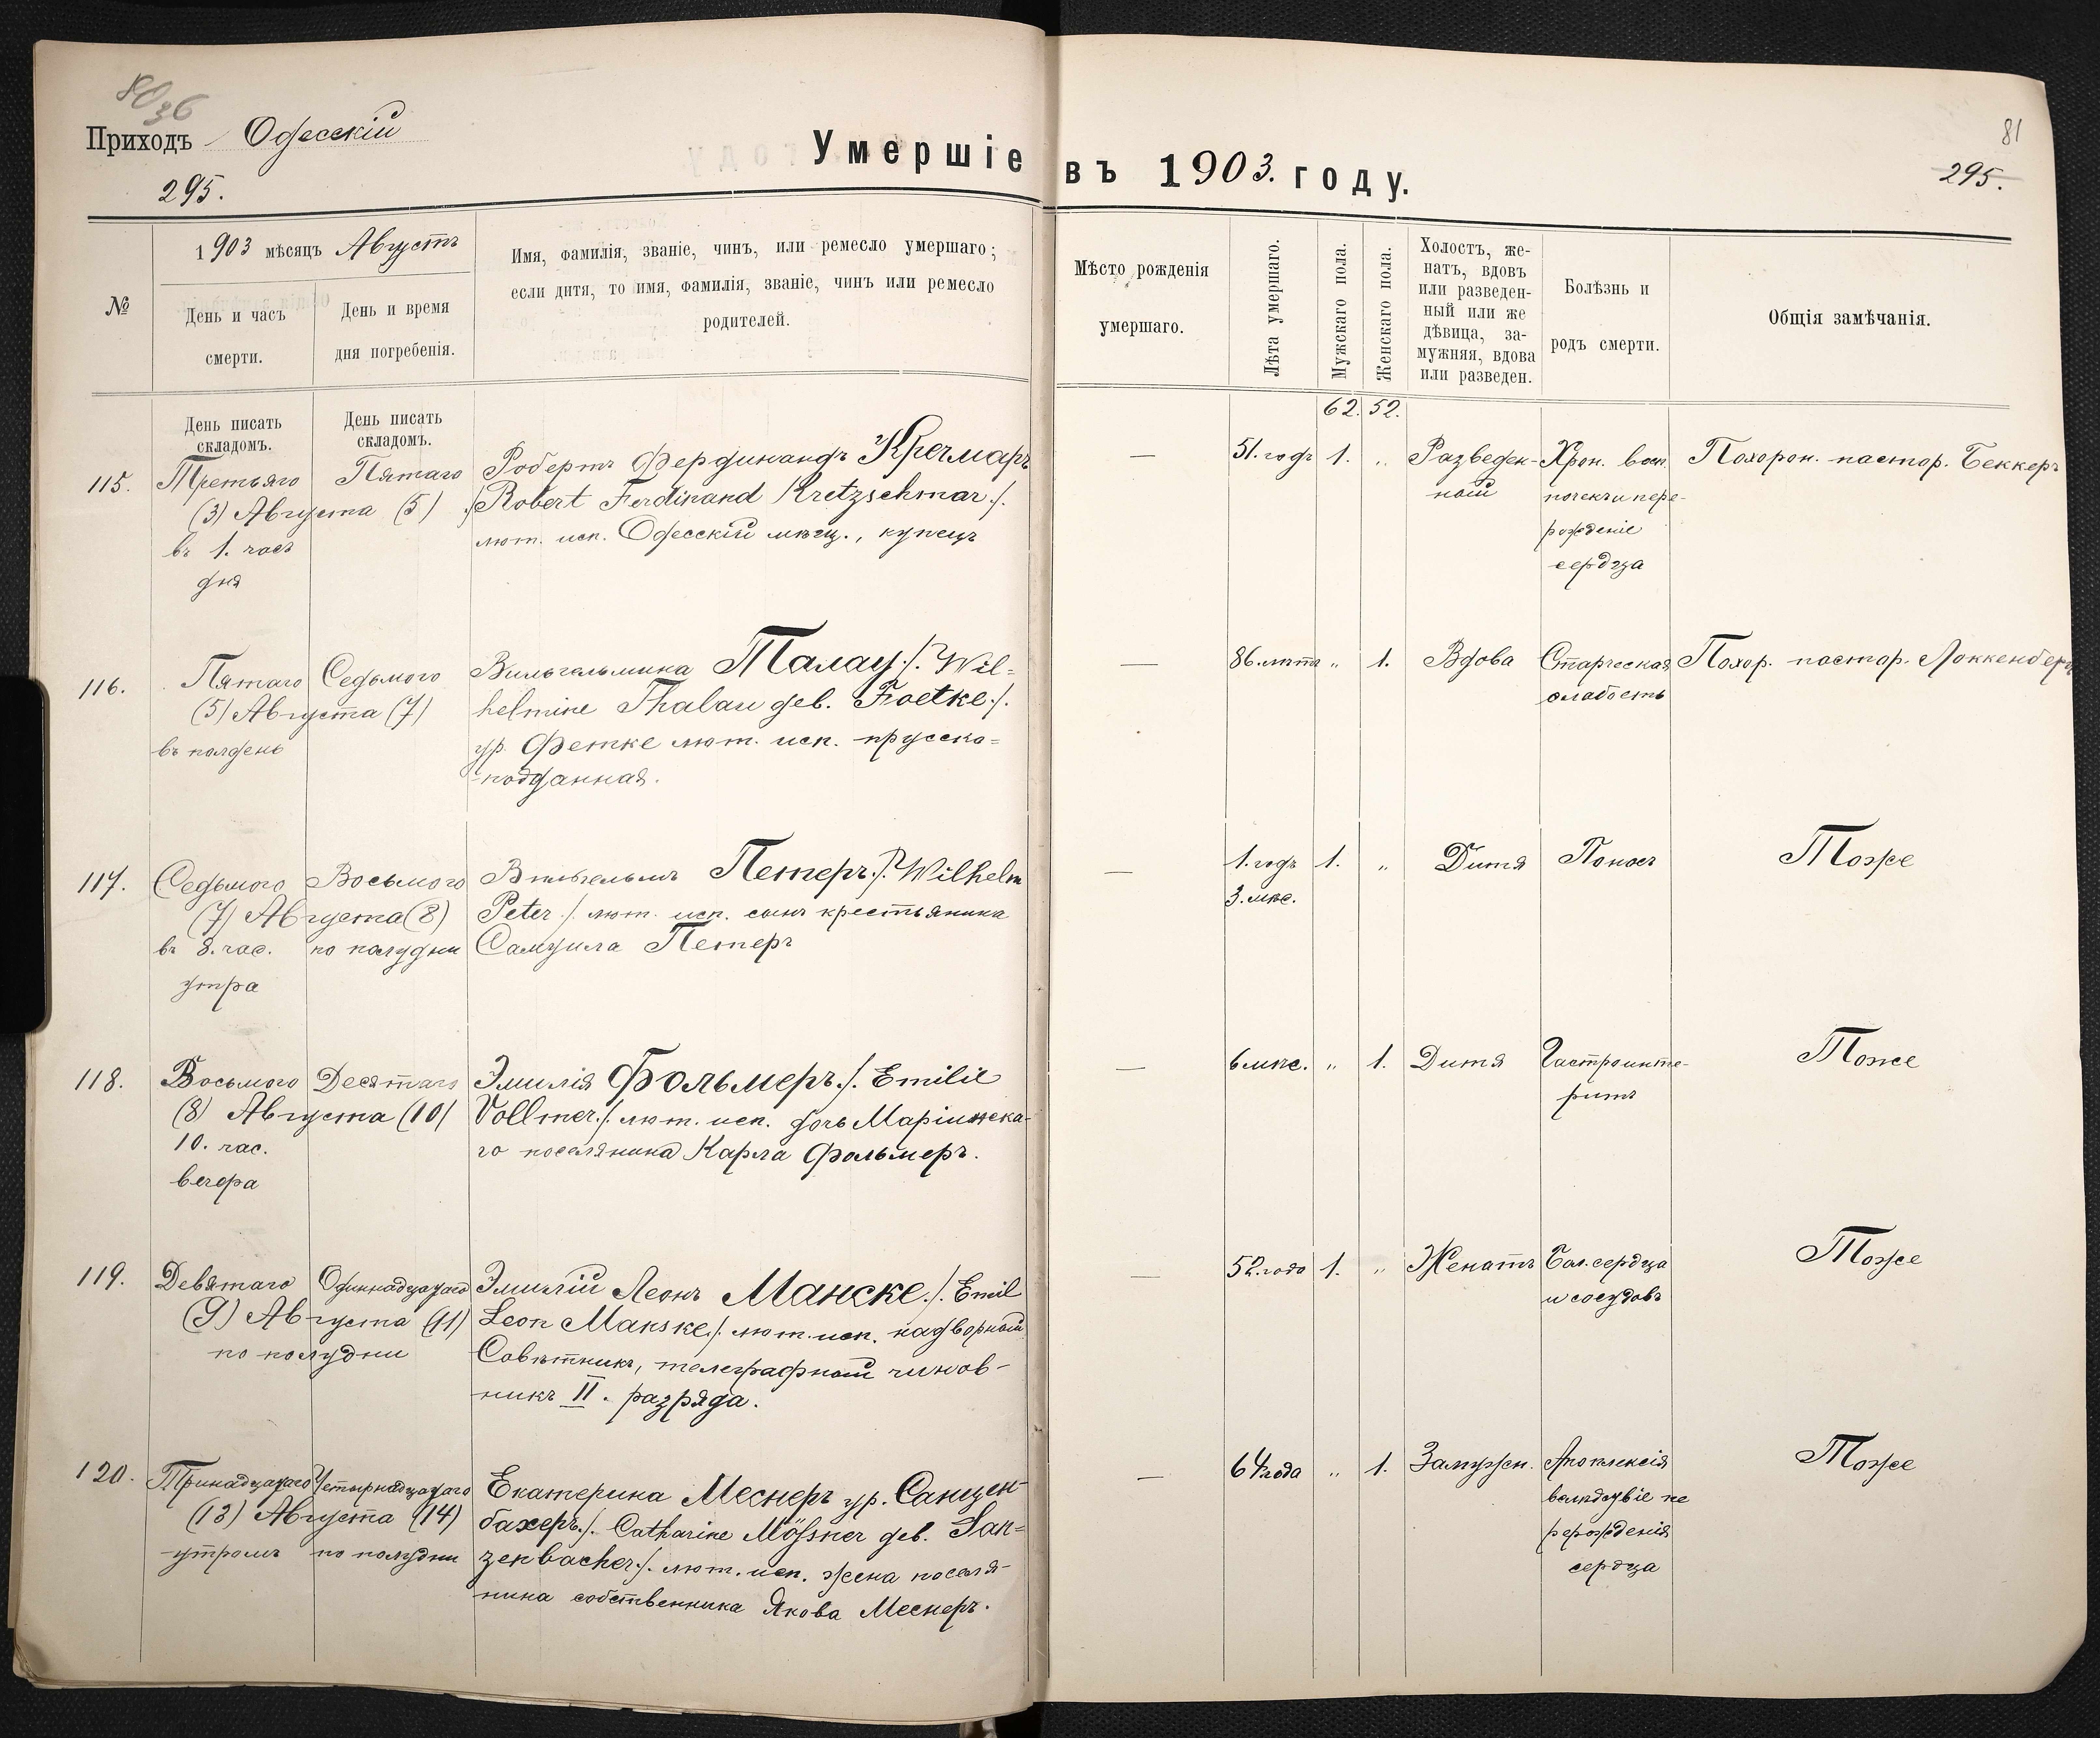 80 об
Приходъ Одесскій
295.
Умершіе въ 1903. году.
81
295.
№
1903 мѣсяцъ Августъ
День и часъ
смерти.
День и время
дня погребенія.
Имя, фамилія, званіе, чинъ, или ремесло умершаго;
если дитя, то имя, фамилія, званіе, чинъ или ремесло
родителей.
Мѣсто рожденія
умершаго.
Лѣта умершаго.
Мужскаго пола.
Женскаго пола.
Холостъ, же-
натъ, вдовъ
или разведен-
ный или же
дѣвица, за-
мужняя, вдова
или разведен.
Болѣзнь и
родъ смерти.
Общія замѣчанія.
День писать
складомъ.
День писать
складомъ.
62. 52.
115.
Третьяго
(3) Августа (5)
въ 1. часъ
дня
Пятаго
Робертъ Фердинандъ Кречмаръ
/Robert Ferdinand Kretzschmar./.
лют. исп. Одесскій мѣщ., купецъ
—
51. годъ
1.
„
Разведен-
ный
Хрон. восп.
почекъ и пере-
рожденіе
сердца
Похорон. пастор. Беккеръ
116.
Пятаго
(5) Августа (7)
въ полдень
Седьмого
Вильгельмина Талау ./. Wil-
helmine Thalau geb. Foetke./.
ур. Фетке лют. исп. прусско-
-подданная.
—
86. лѣтъ
„
1.
Вдова
Старческая
слабость
Похор. пастор. Локкенбергъ
117.
Седьмого
(7) Августа (8)
въ 8. час.
утра
Восьмого
по полудни
Вильгельмъ Петеръ ./. Wilhelm
Peter ./. лют. исп. сынъ крестьянина
Самуила Петеръ
—
1. годъ
3. мѣс.
1.
„
Дитя
Поносъ
Тоже
118.
Восьмого
(8) Августа (10)
10. час.
вечера
Десятаго
Эмилія Фольмеръ ./. Emilie
Vollmer./. лют. исп. дочь Маріинска-
го поселянина Карла Фольмеръ.
—
6 мѣс.
„
1.
Дитя
Гастроэнте-
ритъ
Тоже
119.
Девятаго
(9) Августа (11)
по полудни
Одиннадцатаго
Эмилій Леонъ Манске ./. Emil
Leon Manske./. лют. исп. надворный
Совѣтникъ, телеграфный чинов-
никъ II. разряда.
—
52. года
1.
„
Женатъ
Бол. сердца
и сосудовъ
Тоже
120.
Тринадцатаго
(13) Августа (14)
утромъ
Четырнадцатаго
по полудни
Екатерина Меснеръ ур. Санцен-
бахеръ./. Catharine Mößner geb. San-
zenbacher./. лют. исп. жена поселя-
нина собственника Якова Меснеръ.
—
64 года
„
1.
Замужн.
Апоплексія
вслѣдствіе пе
рерожденія
сердца
Тоже